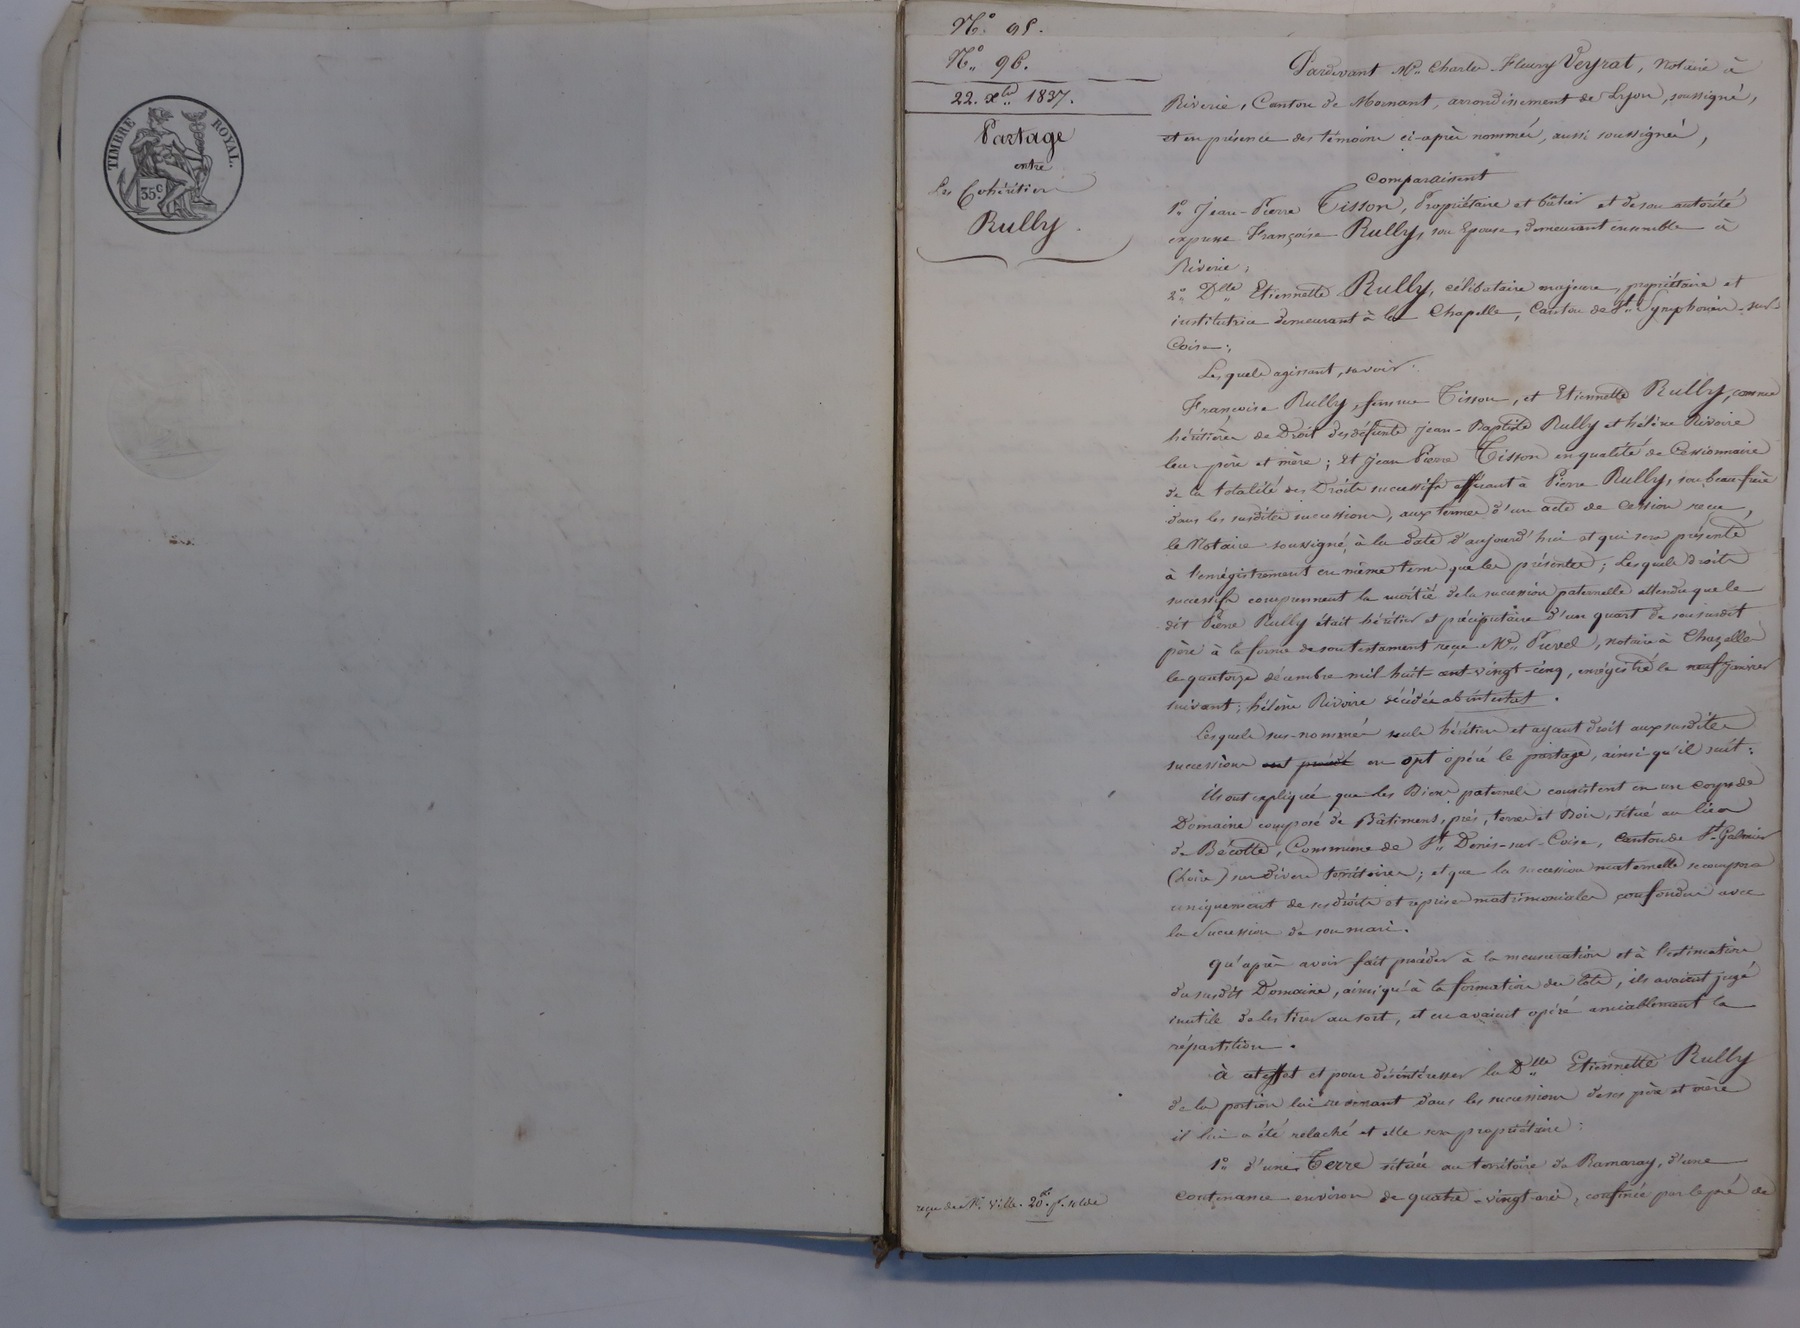 TIMBRE ROYAL.
35c.
No. 95.
No. 96.
22. Xbre 1837.
Partage
entre
Les Cohéritiers
Rully.
reçu de Mr. Ville. 20. f. solde
Pardevant Me. Charles-Fleury Veyrat, Notaire à
Riverie, Canton de Mornant, arrondissement de Lyon, soussigné,
et en présence des témoins ci-après nommés, aussi soussignés,
Comparaissent
1o. Jean-Pierre Tisson, Propriétaire et bâtier et de son autorité
expresse Françoise Rully, son Epouse, demeurant ensemble à
Riverie,
2o. Dlle Etiennette Rully, célibataire majeure, propriétaire et
institutrice demeurant à la Chapelle, Canton de St. Symphorien-sur-
Coise;
Lesquels agissant, savoir:
Françoise Rully, femme Tisson, et Etiennette Rully, comme
héritières de Droit des défunts Jean-Baptiste Rully et hélène Rivoire
leur père et mère; et Jean Pierre Tisson en qualité de Cessionnaire
de la totalité des Droits successifs afférant à Pierre Rully, son beau-frère
dans les susdites successions, aux termes d'un acte de Cession reçu,
le Notaire soussigné, à la date d'aujourd'hui et qui sera présenté
à l'enrégistrement en même tems que les présentes; Lesquels droits
successifs comprennent la moitié de la succession paternelle attendu que le
dit Pierre Rully était héritier et précipuitaire d'un quart de son susdit
père à la forme de son testament reçu Me. notaire à Chazelles
le quatorze décembre mil huit cent vingt-cinq, enrégistré le neuf janvier
suivant; hélène Rivoire décédée ab intestat.
Lesquels sus-nommés seuls héritiers et ayant droit aux susdites
successions ont procédé en ont opéré le partage, ainsi qu'il suit:
Ils ont expliqué que les Biens paternels consistent en un corps de
Domaine composé de Bâtimens, prés, terres et Bois, situé au lieu
de Bécotte, Commune de St. Denis-sur-Coise, Canton de St-Galmier
(Loire) sur divers territoires; et que la succession maternelle se compose
uniquement de ses droits et reprises matrimoniales confondus avec
la Succession de son mari.
Qu'après avoir fait procéder à la mensuration et à l'estimation
du susdit Domaine, ainsi qu'à la formation des lots, ils avaient jugé
inutile de les tirer au sort, et en avaient opéré amiablement la
répartition.
à cet effet et pour désintéresser la Dlle Etiennette Rully
de la portion lui revenant dans les successions de ses père et mère
il lui a été relaché et elle sera propriétaire:
1o. d'une Terre située au territoire de Ramaray, d'une
contenance environ de quatre-vingt ares, confinée par le pré de